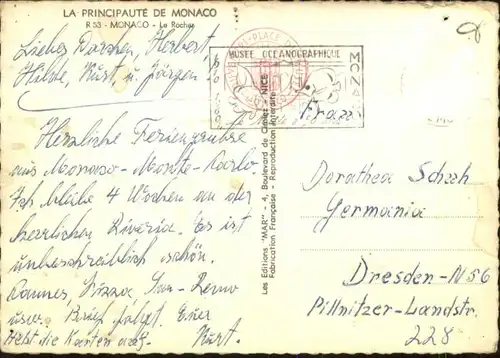 LA PRINCIPAUTÉ DE MONACO
R 53 - MONACO - Le Rocher
Liebes Dorchen, Herbert,
Hilde, Kurt, u. Jürgen!
Herzliche Feriengrüsse
aus Monaco-Monte-Carlo.
Ich bleibe 4 Wochen an der
herrlichen Riviera. Es ist
unbeschreiblich schön.
Cannes, Nizza, San-Remo
usw. Brief folgt. Euer
Hebt die Karten auf. Kurt.
Les Editions "MAR" - 4, Boulevard de Cimiez - NICE
Fabrication Française - Reproduction interdite
MUSÉE OCEANOGRAPHIQUE
MONACO
Frau
Dorothea
Germania
Dresden-N56
Pillnitzer-Landstr.
228